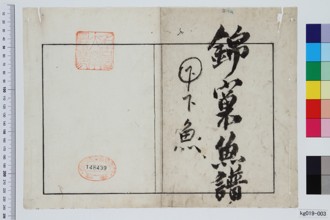 錦窠魚譜
下下魚
148438
kg019-003